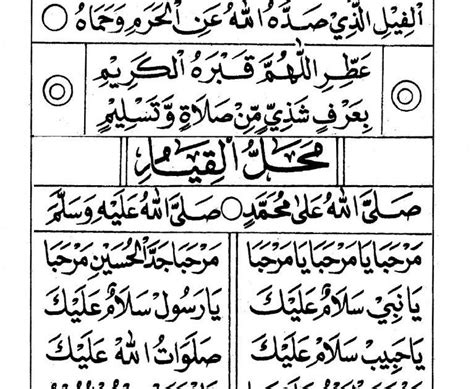 اَلْفِيْلِ الَّذِيْ صَدَّهُ اللهُ عَنِ الْحَرَمِ وَحَمَاهُ
عَطِّرِ اللّٰهُمَّ قَبْرَهُ الْكَرِيْمِ
بِعَرْفٍ شَذِيٍّ مِّنْ صَلَاةٍ وَّتَسْلِيْمٍ
مَحَلُّ الْقِيَامِ
صَلَّى اللهُ عَلٰى مُحَمَّدٍ ○ صَلَّى اللهُ عَلَيْهِ وَسَلَّمَ
مَرْحَبًا يَا مَرْحَبًا يَا مَرْحَبَا مَرْحَبًا جَدَّ الْحُسَيْنِ مَرْحَبَا
يَا نَبِيْ سَلَامٌ عَلَيْكَ يَا رَسُوْل سَلَامٌ عَلَيْكَ
يَا حَبِيْب سَلَامٌ عَلَيْكَ صَلَوَاتُ اللهِ عَلَيْكَ